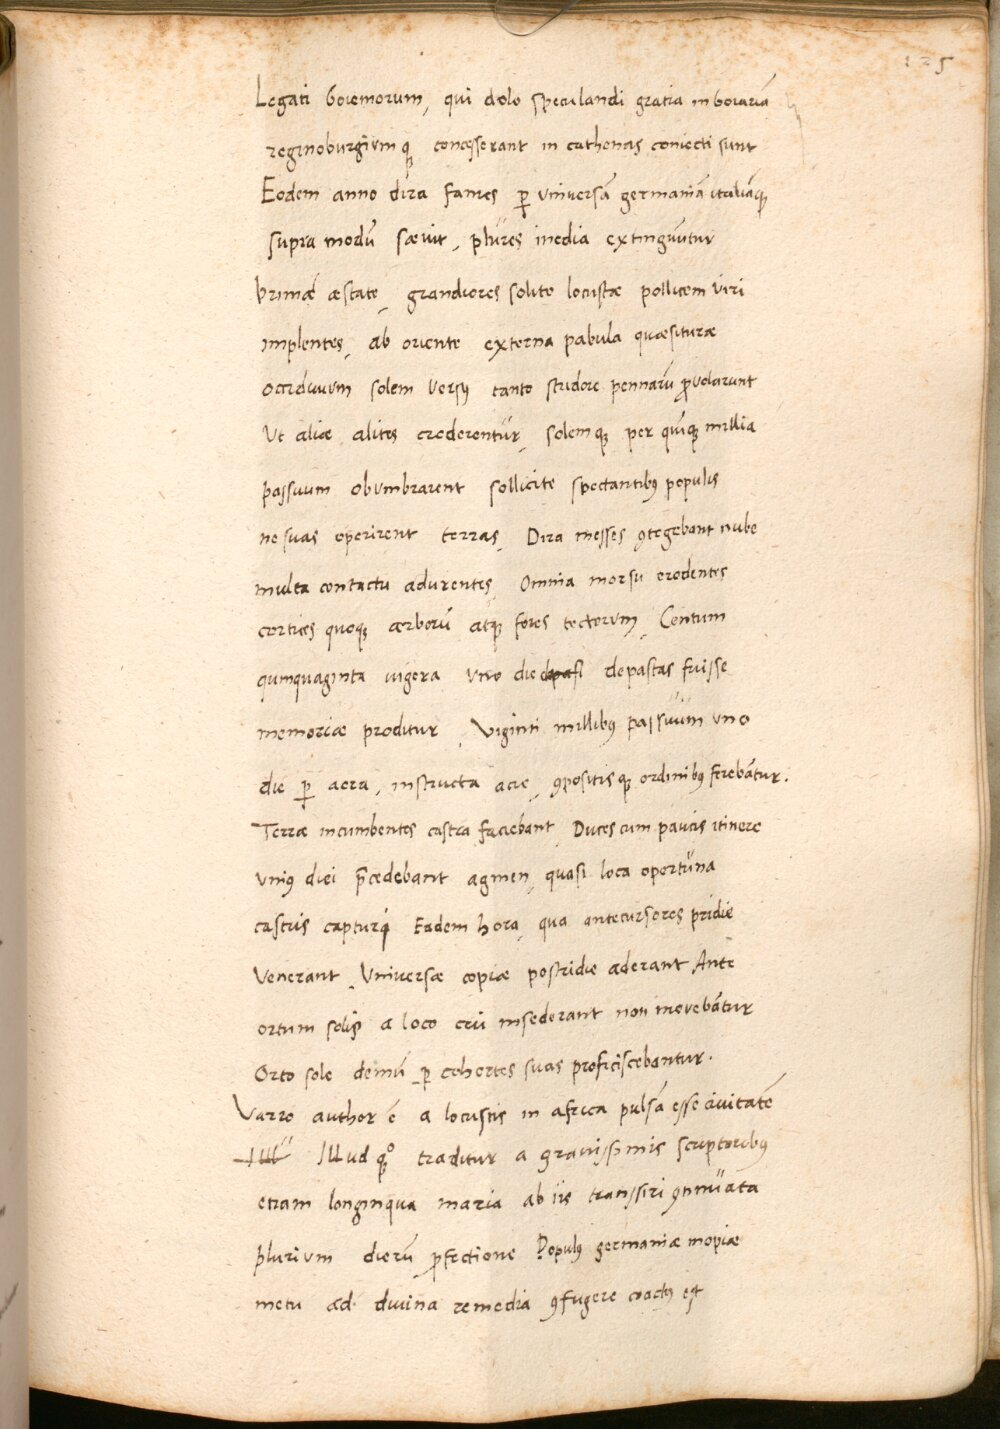 125
Legati boiemorum, qui dolo speculandi gratia in boiariā
reginoburgiumqꝫ concesserant in cathenas coniecti sunt
Eodem anno dira fames ꝑ universā germaniā italiāqꝫ
supra modū sævit, plures inedia extingūutur
æstate, grandiores solito locustæ pollicem viri
implentes, ab oriente externa pabula quæsituræ
occiduum solem versꝰ tanto stridore pennarū ꝓvolarunt
Ut aliæ alites crederentur, solemqꝫ per quīqꝫ millia
passuum obumbrarent sollicite spectantibꝰ populis
ne suas operirent terras, Dira messes ꝯtegebant nube
multa contactu adurentes, Omnia morsu erodentes
cortices quoqꝫ arborū atqꝫ fores tectorum, Centum
quinquaginta iugera uno die depasi depastas fuisse
memoriæ proditur, Viginti millibꝰ passuum uno
die ꝑ aera, instructa acie, ꝯpositisqꝫ ordinibꝰ ferebātur.
Terræ incumbentes castra faciebant, Duces cum paucis itinere
uniꝰ diei p̄cedebant agmen, quasi loca oportuna
castris capturi Eadem hora, qua antecursores pridie
venerant, Universæ copiæ postridie aderant, Ante
ortum solis a loco cui insederant non movebātur
Orto sole demū ꝑ cohortes suas proficiscebantur.
Varro author ē a locustis in africa pulsā esse civitatē
Illud Illud qꝫº traditur a gravissimis scriptoribꝰ
etiam longinqua maria ab iis transsiri ꝯtinuata
plurium dierū ꝓfectione Populꝰ germaniæ inopiæ
metu ad divina remedia ꝯfugere coactꝰ est